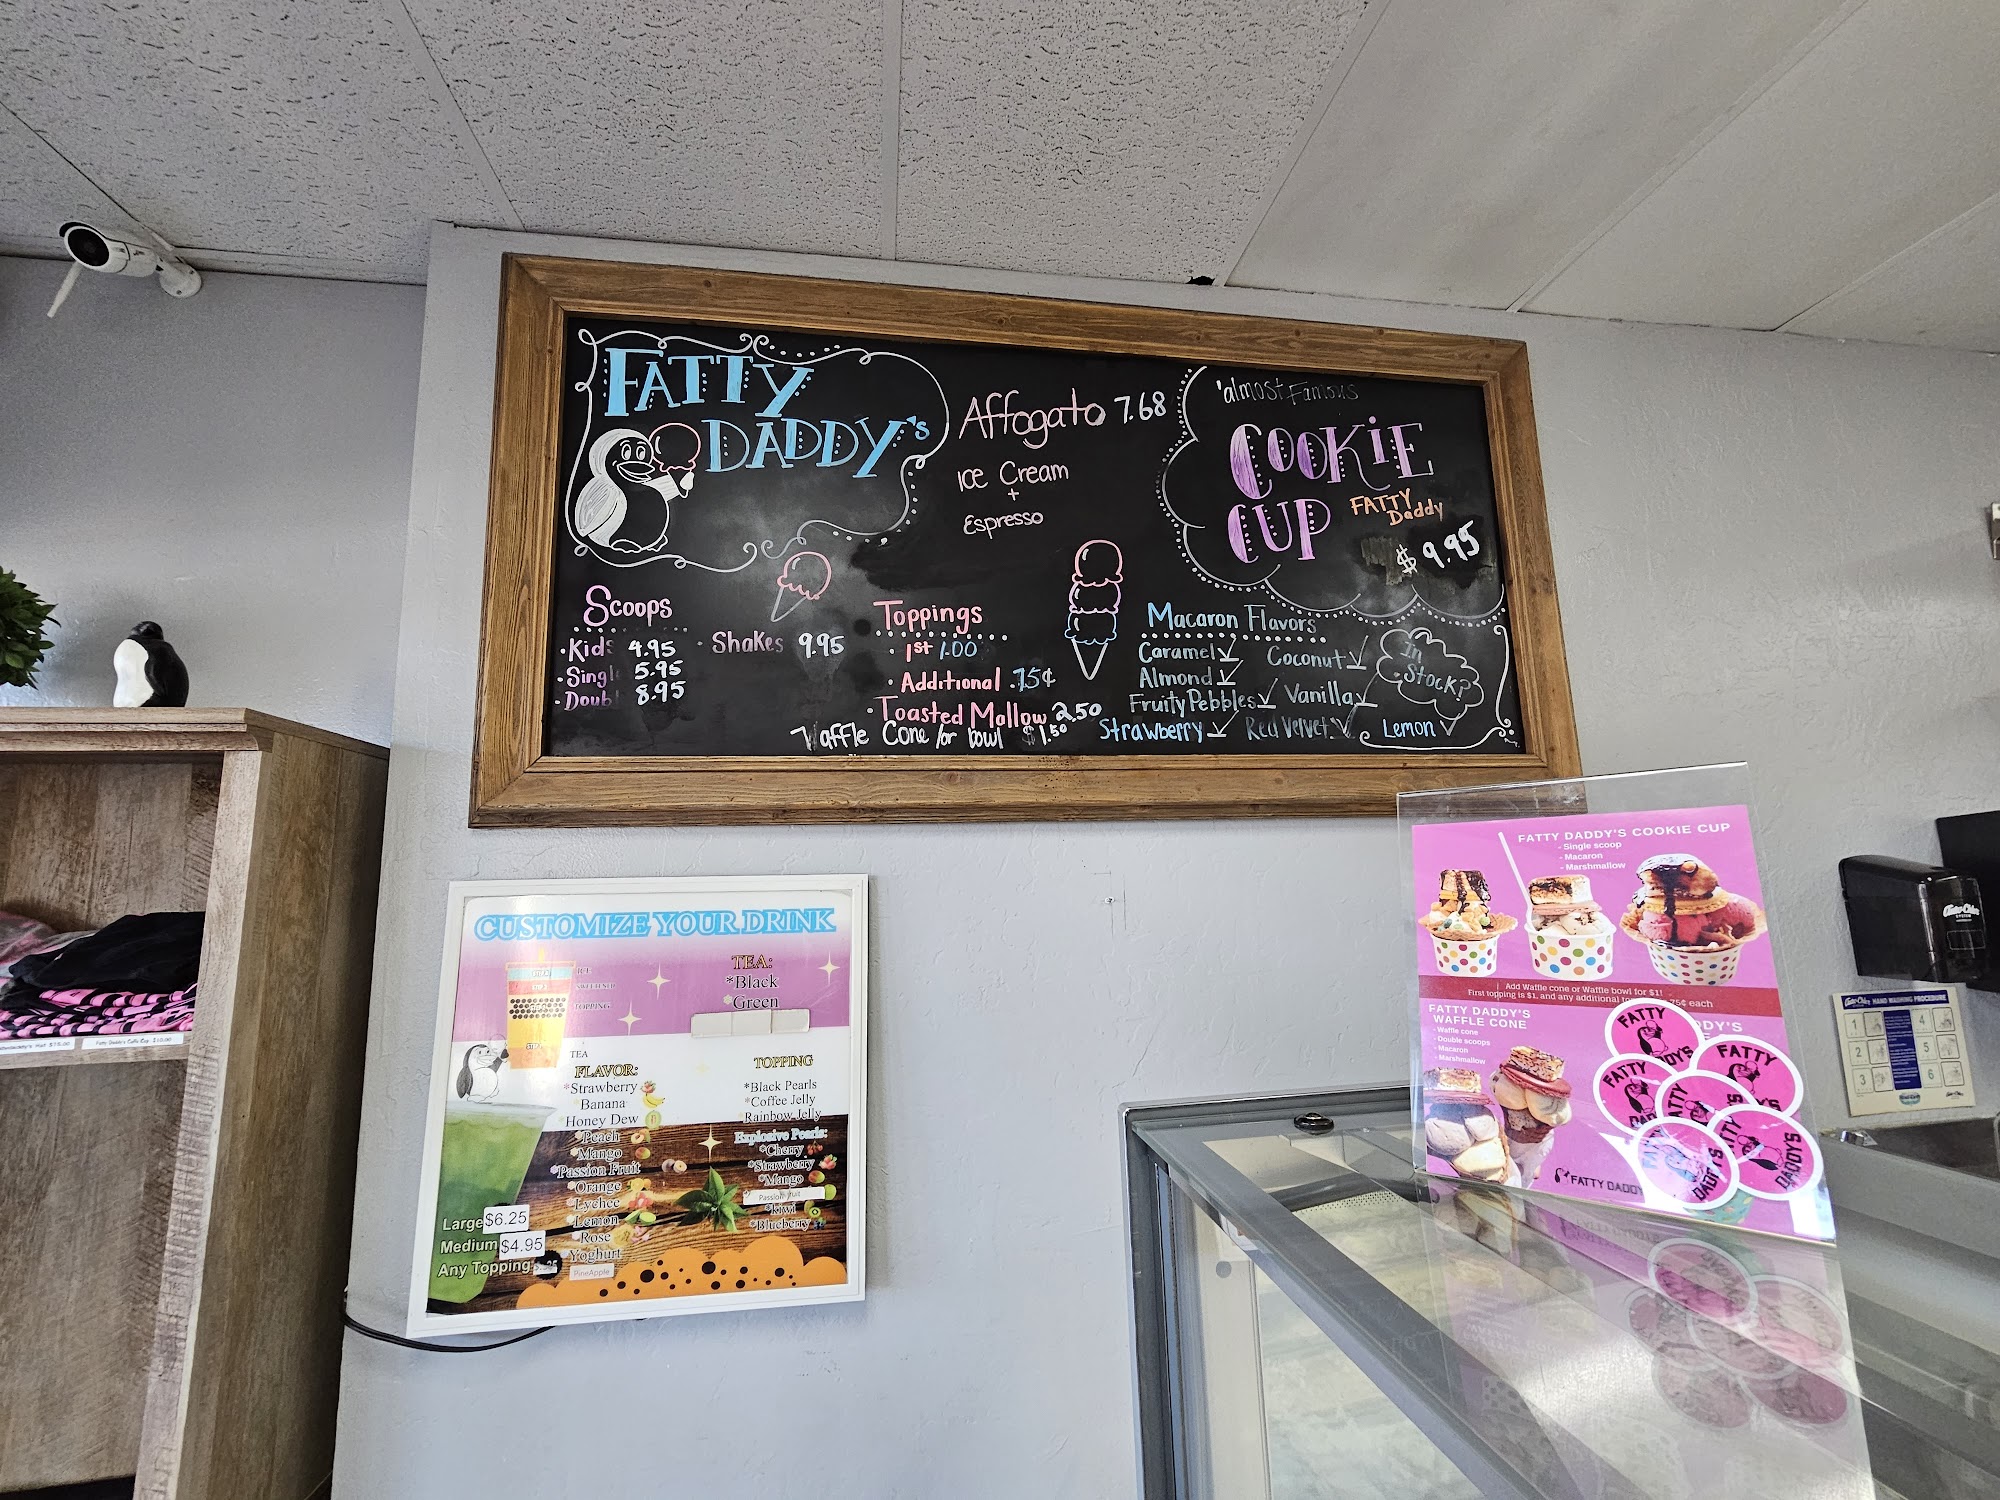 FATTY
DADDY's
Affogato 7.68
Ice Cream
+
Espresso
'almost Famous
COOKiE
CUP
FATTY
Daddy
$ 9.95
Scoops
• Kids 4.95
• Singl 5.95
• Doub 8.95
• Shakes 9.95
Toppings
• 1st 1.00
• Additional .75¢
• Toasted Mallow 2.50
Waffle Cone /or bowl $1.50
Macaron Flavors
Caramel
Coconut
Almond
Fruity Pebbles
Vanilla
Strawberry
Red Velvet
Lemon
In
Stock?
CUSTOMIZE YOUR DRINK
ICE
SWEETENER
TOPPING
TEA:
*Black
*Green
TEA
FLAVOR:
*Strawberry
*Banana
*Honey Dew
*Peach
*Mango
*Passion Fruit
*Orange
*Lychee
*Lemon
*Rose
*Yoghurt
PineApple
TOPPING
*Black Pearls
*Coffee Jelly
Rainbow Jelly
Explosive Pearls:
*Cherry
*Strawberry
*Mango
Passion fruit
*kiwi
*Blueberry
Large $6.25
Medium $4.95
Any Topping
FATTY DADDY'S COOKIE CUP
- Single scoop
- Macaron
- Marshmallow
Add Waffle cone or Waffle bowl for $1!
First topping is $1, and any additional to 75¢ each
FATTY DADDY'S
WAFFLE CONE
- Waffle cone
- Double scoops
- Macaron
- Marshmallow
DDY'S
FATTY
DADDY'S
FATTY
FATTY
FATTY
DADDY'S
DADDY'S
FATTY DADDY
Fatty Daddy's Coffe Cup $10.00
HAND WASHING PROCEDURE
1
2
3
4
5
6